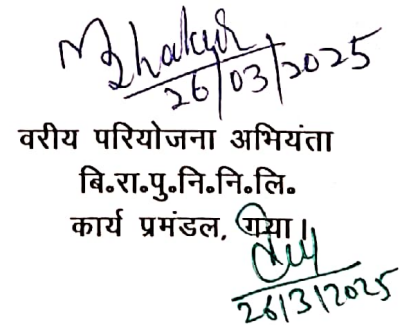 26/03/2025
वरीय परियोजना अभियंता
बि.रा.पु.नि.नि.लि.
कार्य प्रमंडल, गया।
26/3/2025